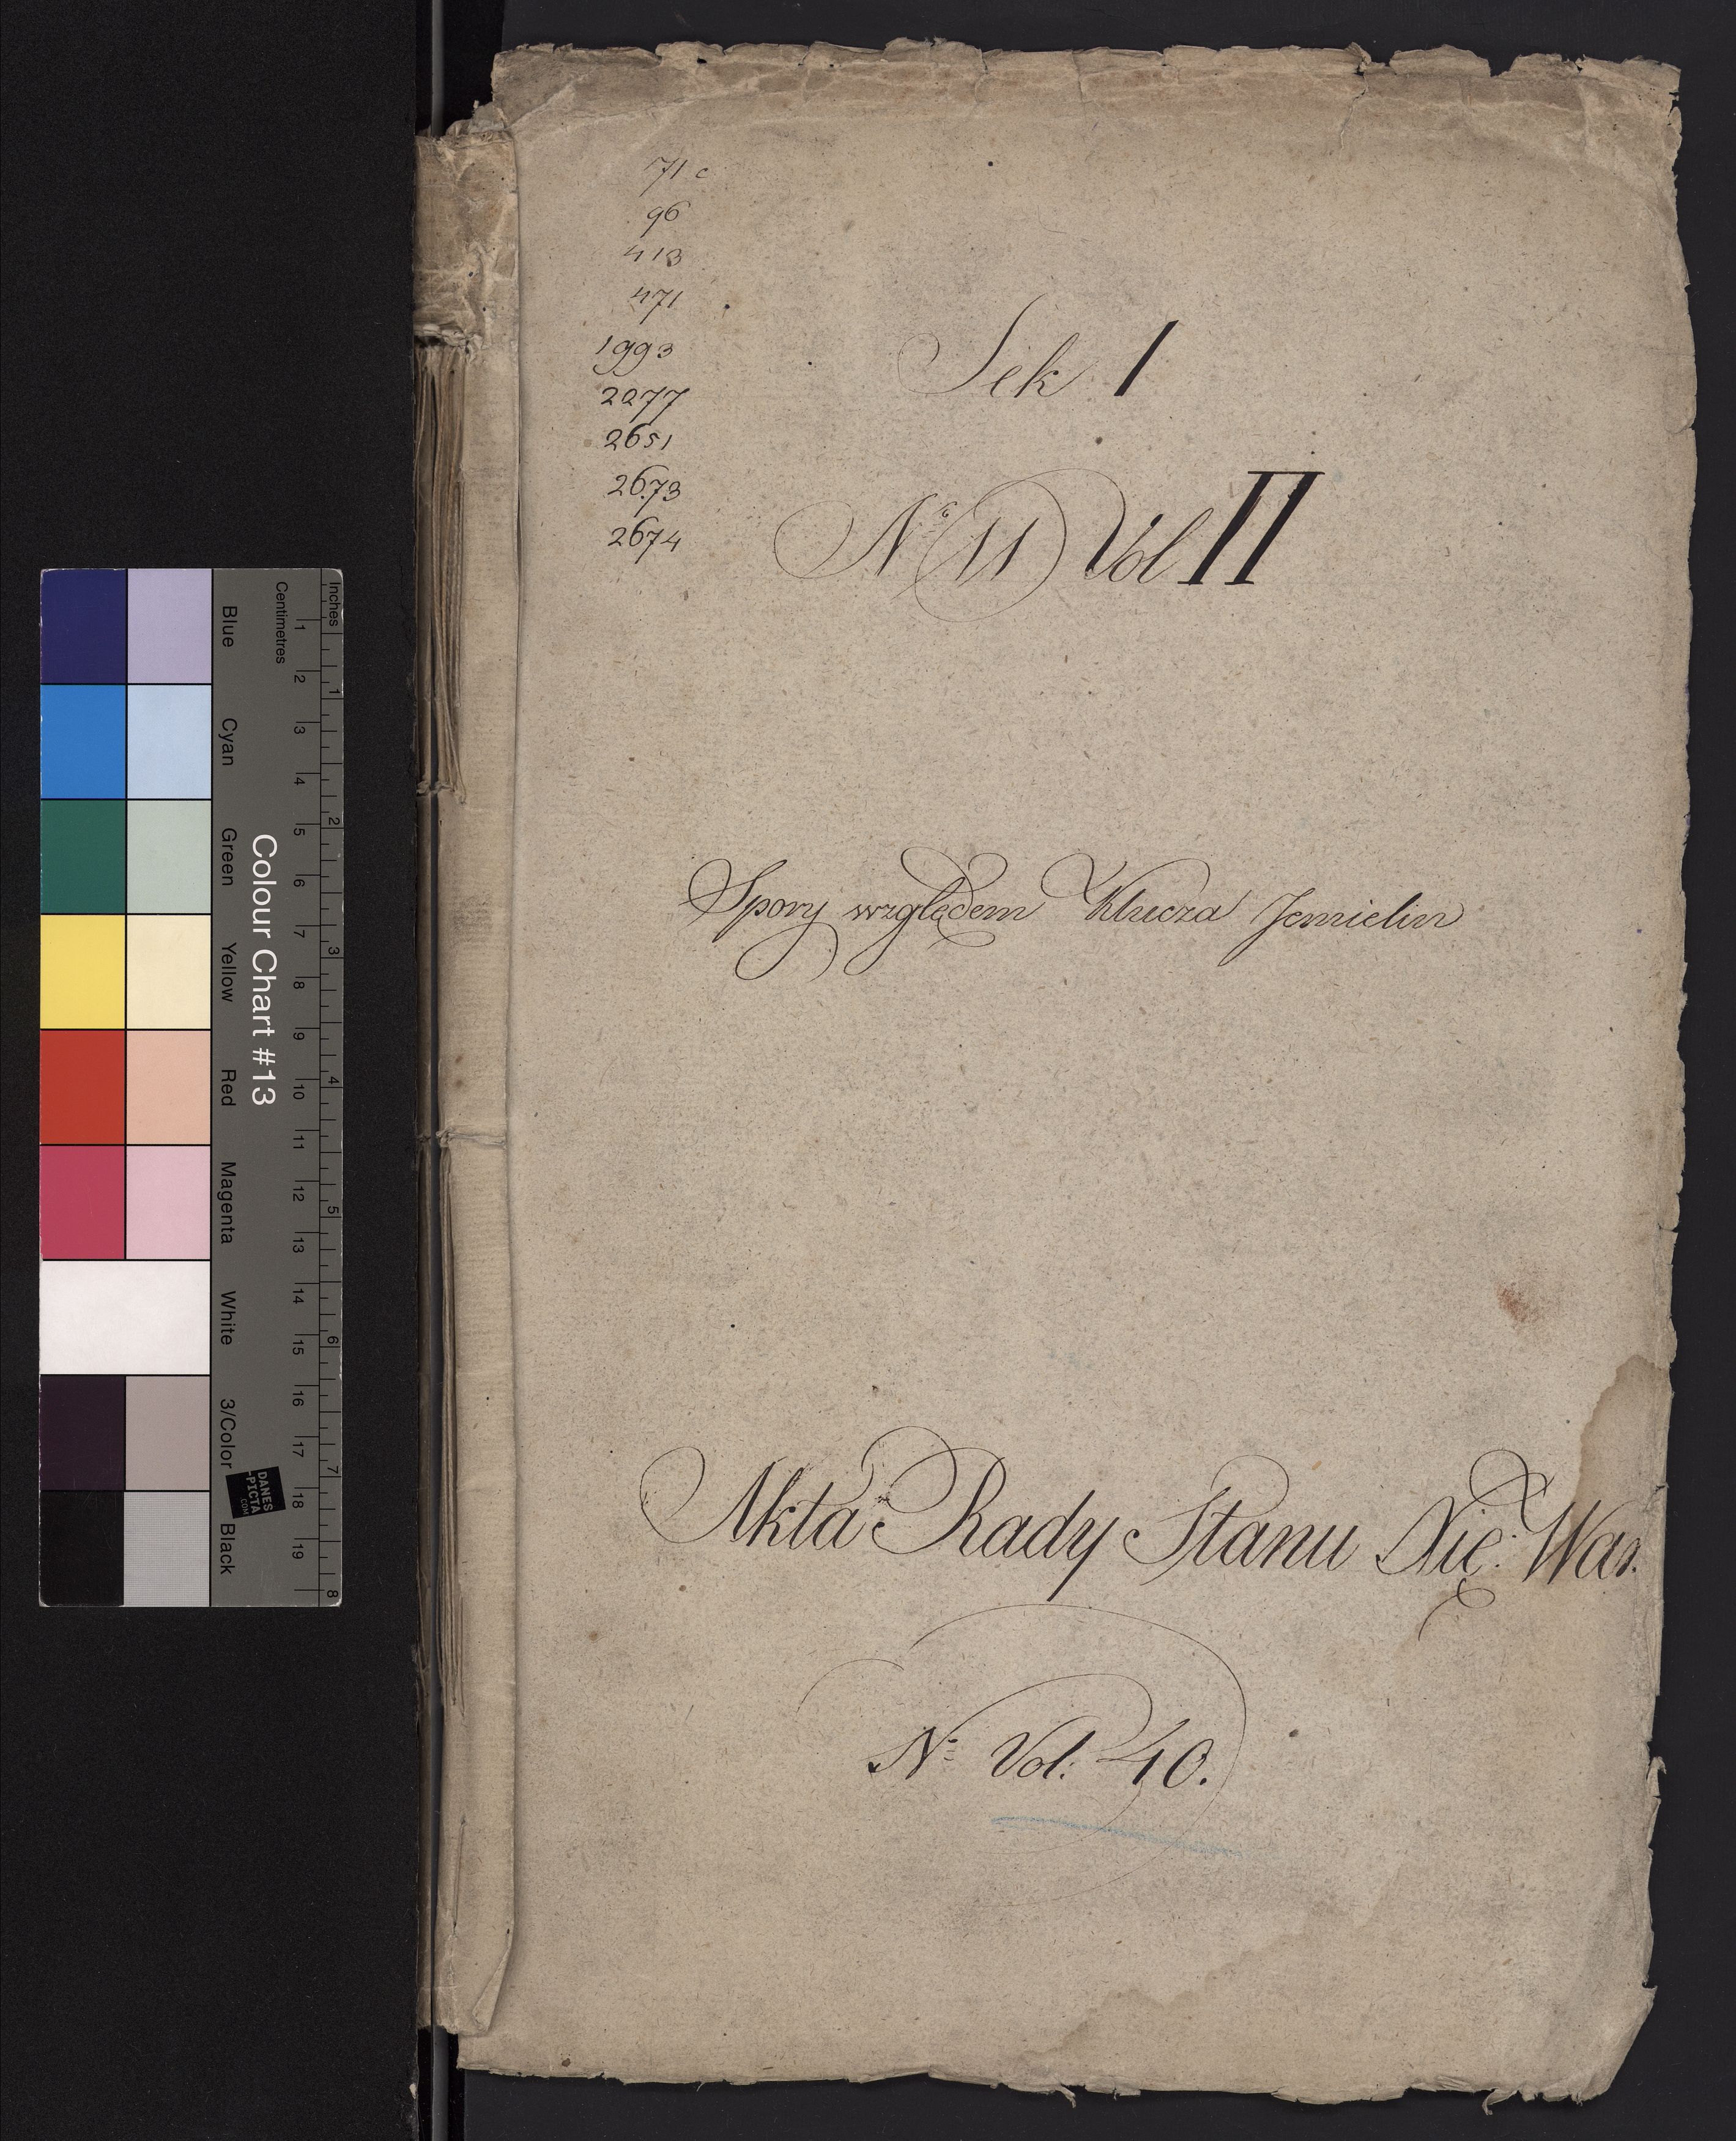 71 c
96
413
471
1993
2077
2651
2673
2674
Sek I
No 11 Vol II
Spory względem Klucza Jemielin
Akta Rady Stanu Xię: War.
N: Vol: 40.
Inches
Centimetres
1 2 3 4 5 6 7 8 9 10 11 12 13 14 15 16 17 18 19
1 2 3 4 5 6 7 8
Colour Chart #13
Blue
Cyan
Green
Yellow
Red
Magenta
White
3/Color
Black
DANES
-PICTA
.COM